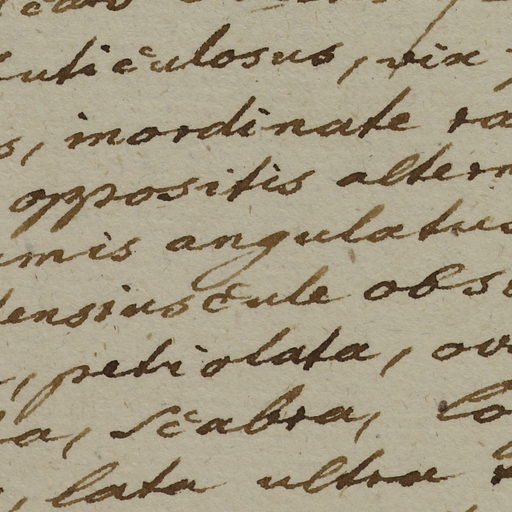 uticulosus, vix
s, inordinate ra
oppositis altern
umis angulatus
densiuscule obs
, petiolata, ov
a, scabra, lo
, lata ultra